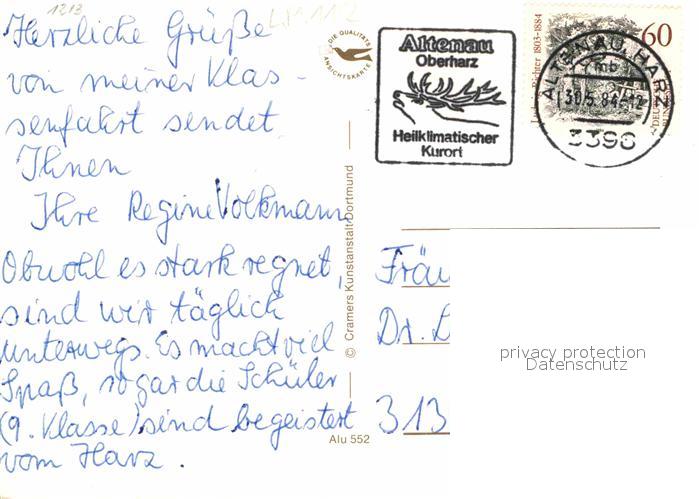 1213
Herzliche Grüße
von meiner Klas-
senfahrt sendet
Ihnen
Ihre Regine Volkmann
Obwohl es stark regnet,
sind wir täglich
unterwegs. Es macht viel
Spaß, sogar die Schüler
(9. Klasse) sind begeistert
vom Harz.
DIE QUALITÄTS
ANSICHTSKARTE
© Cramers Kunstanstalt Dortmund
Alu 552
Altenau
Oberharz
Heilklimatischer
Kurort
Richter 1803-1884
60
ALTENAU, HARZ
mb
30.5.84-12
3396
Fräu
Dr. L
313
privacy protection
Datenschutz